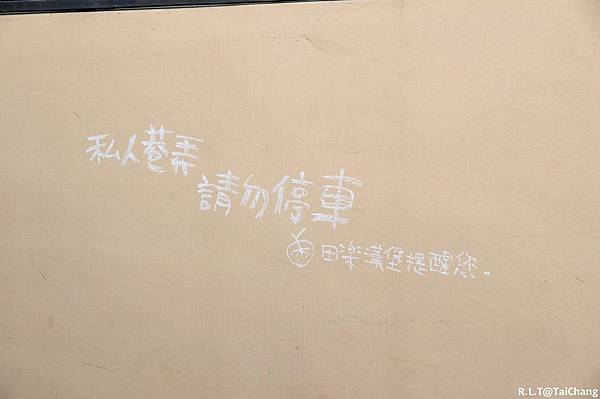 私人巷弄
請勿停車
田楽漢堡提醒您.
R.L.T@TaiChang